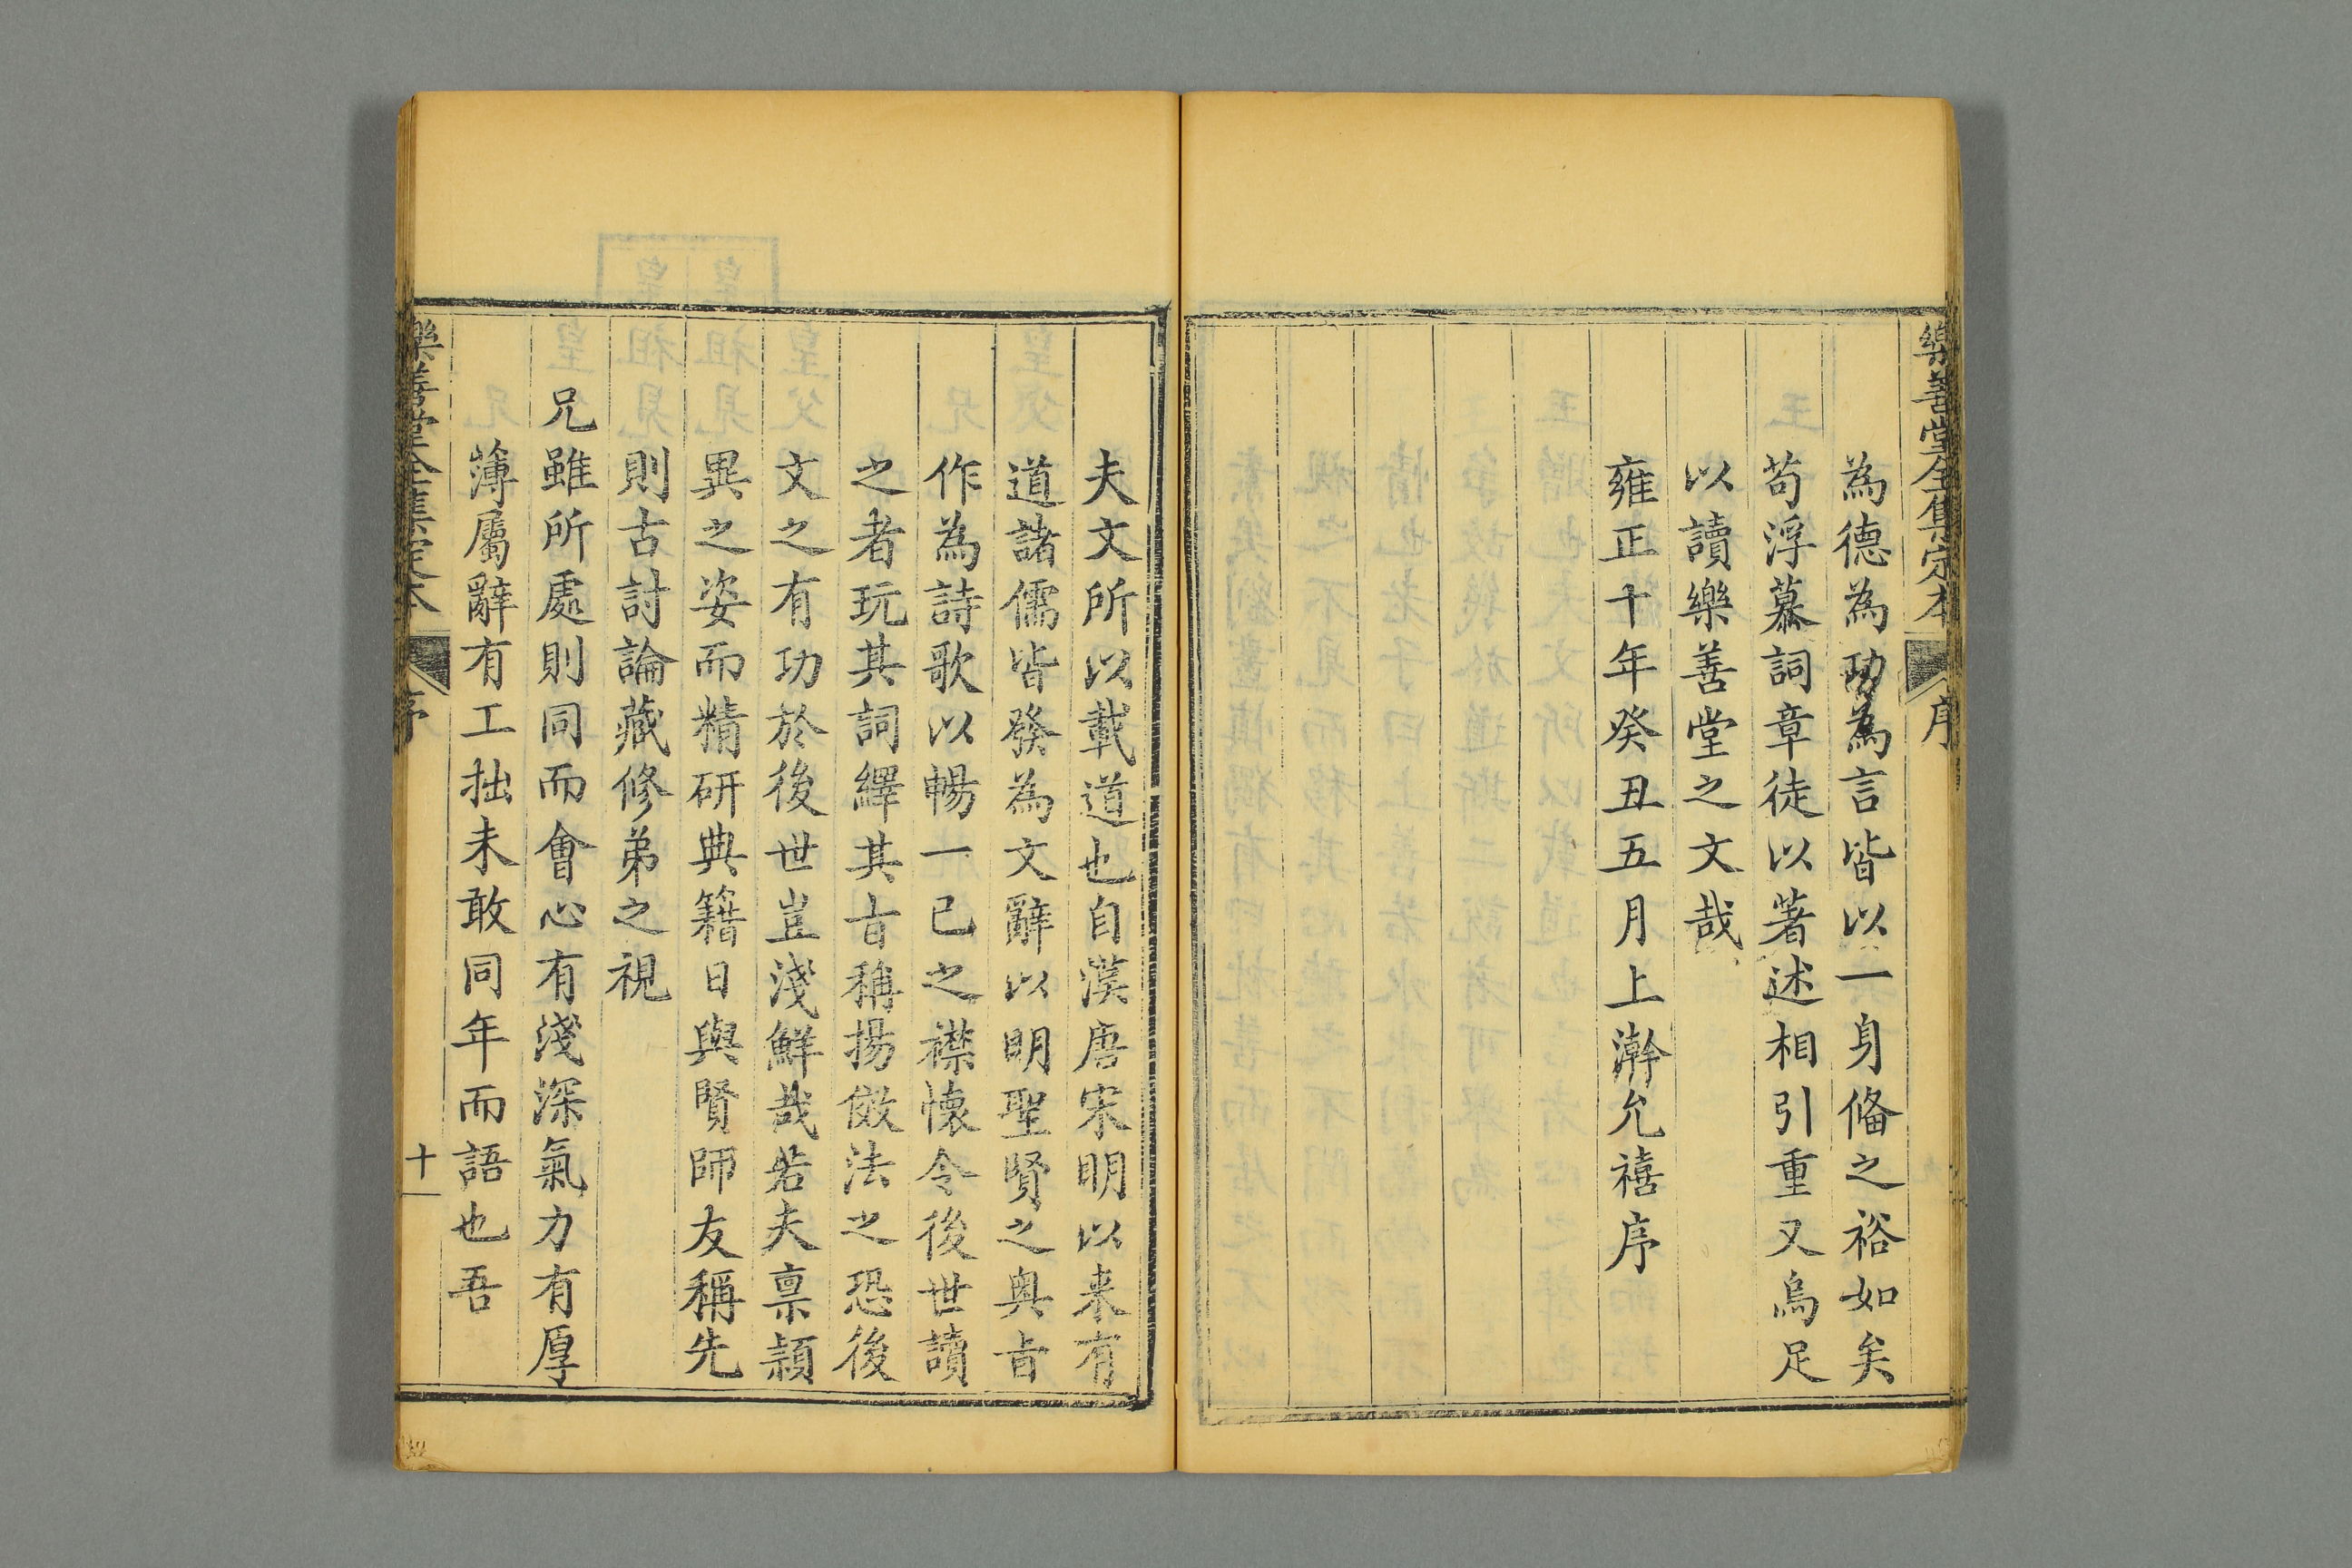 樂善堂全集定本
序
為德為功為言皆以一身備之裕如矣
苟浮慕詞章徒以著述相引重又烏足
以讀樂善堂之文哉
雍正十年癸丑五月上澣允禧序
夫文所以載道也自漢唐宋明以来有
道諸儒皆發為文辭以明聖賢之奧旨
作為詩歌以暢一已之襟懷令後世讀
之者玩其詞繹其旨稱揚倣法之恐後
文之有功於後世豈淺鮮哉若夫禀穎
異之姿而精研典籍日與賢師友稱先
則古討論藏修弟之視
兄雖所處則同而會心有淺深氣力有厚
薄屬辭有工拙未敢同年而語也吾
樂善堂全集定本
序
十